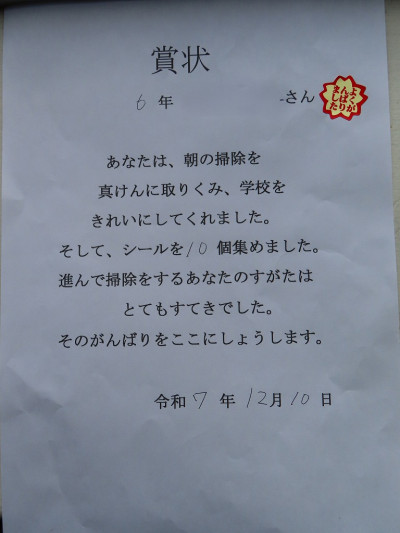 賞状
6年 さん
よくが
んばり
ました
あなたは、朝の掃除を
真けんに取りくみ、学校を
きれいにしてくれました。
そして、シールを10個集めました。
進んで掃除をするあなたのすがたは
とてもすてきでした。
そのがんばりをここにしょうします。
令和7年12月10日